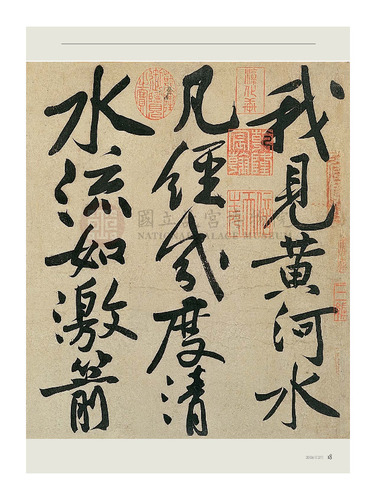 我見黃河水
凡經幾度清
水流如激箭
NATIONAL PALACE MUSEUM